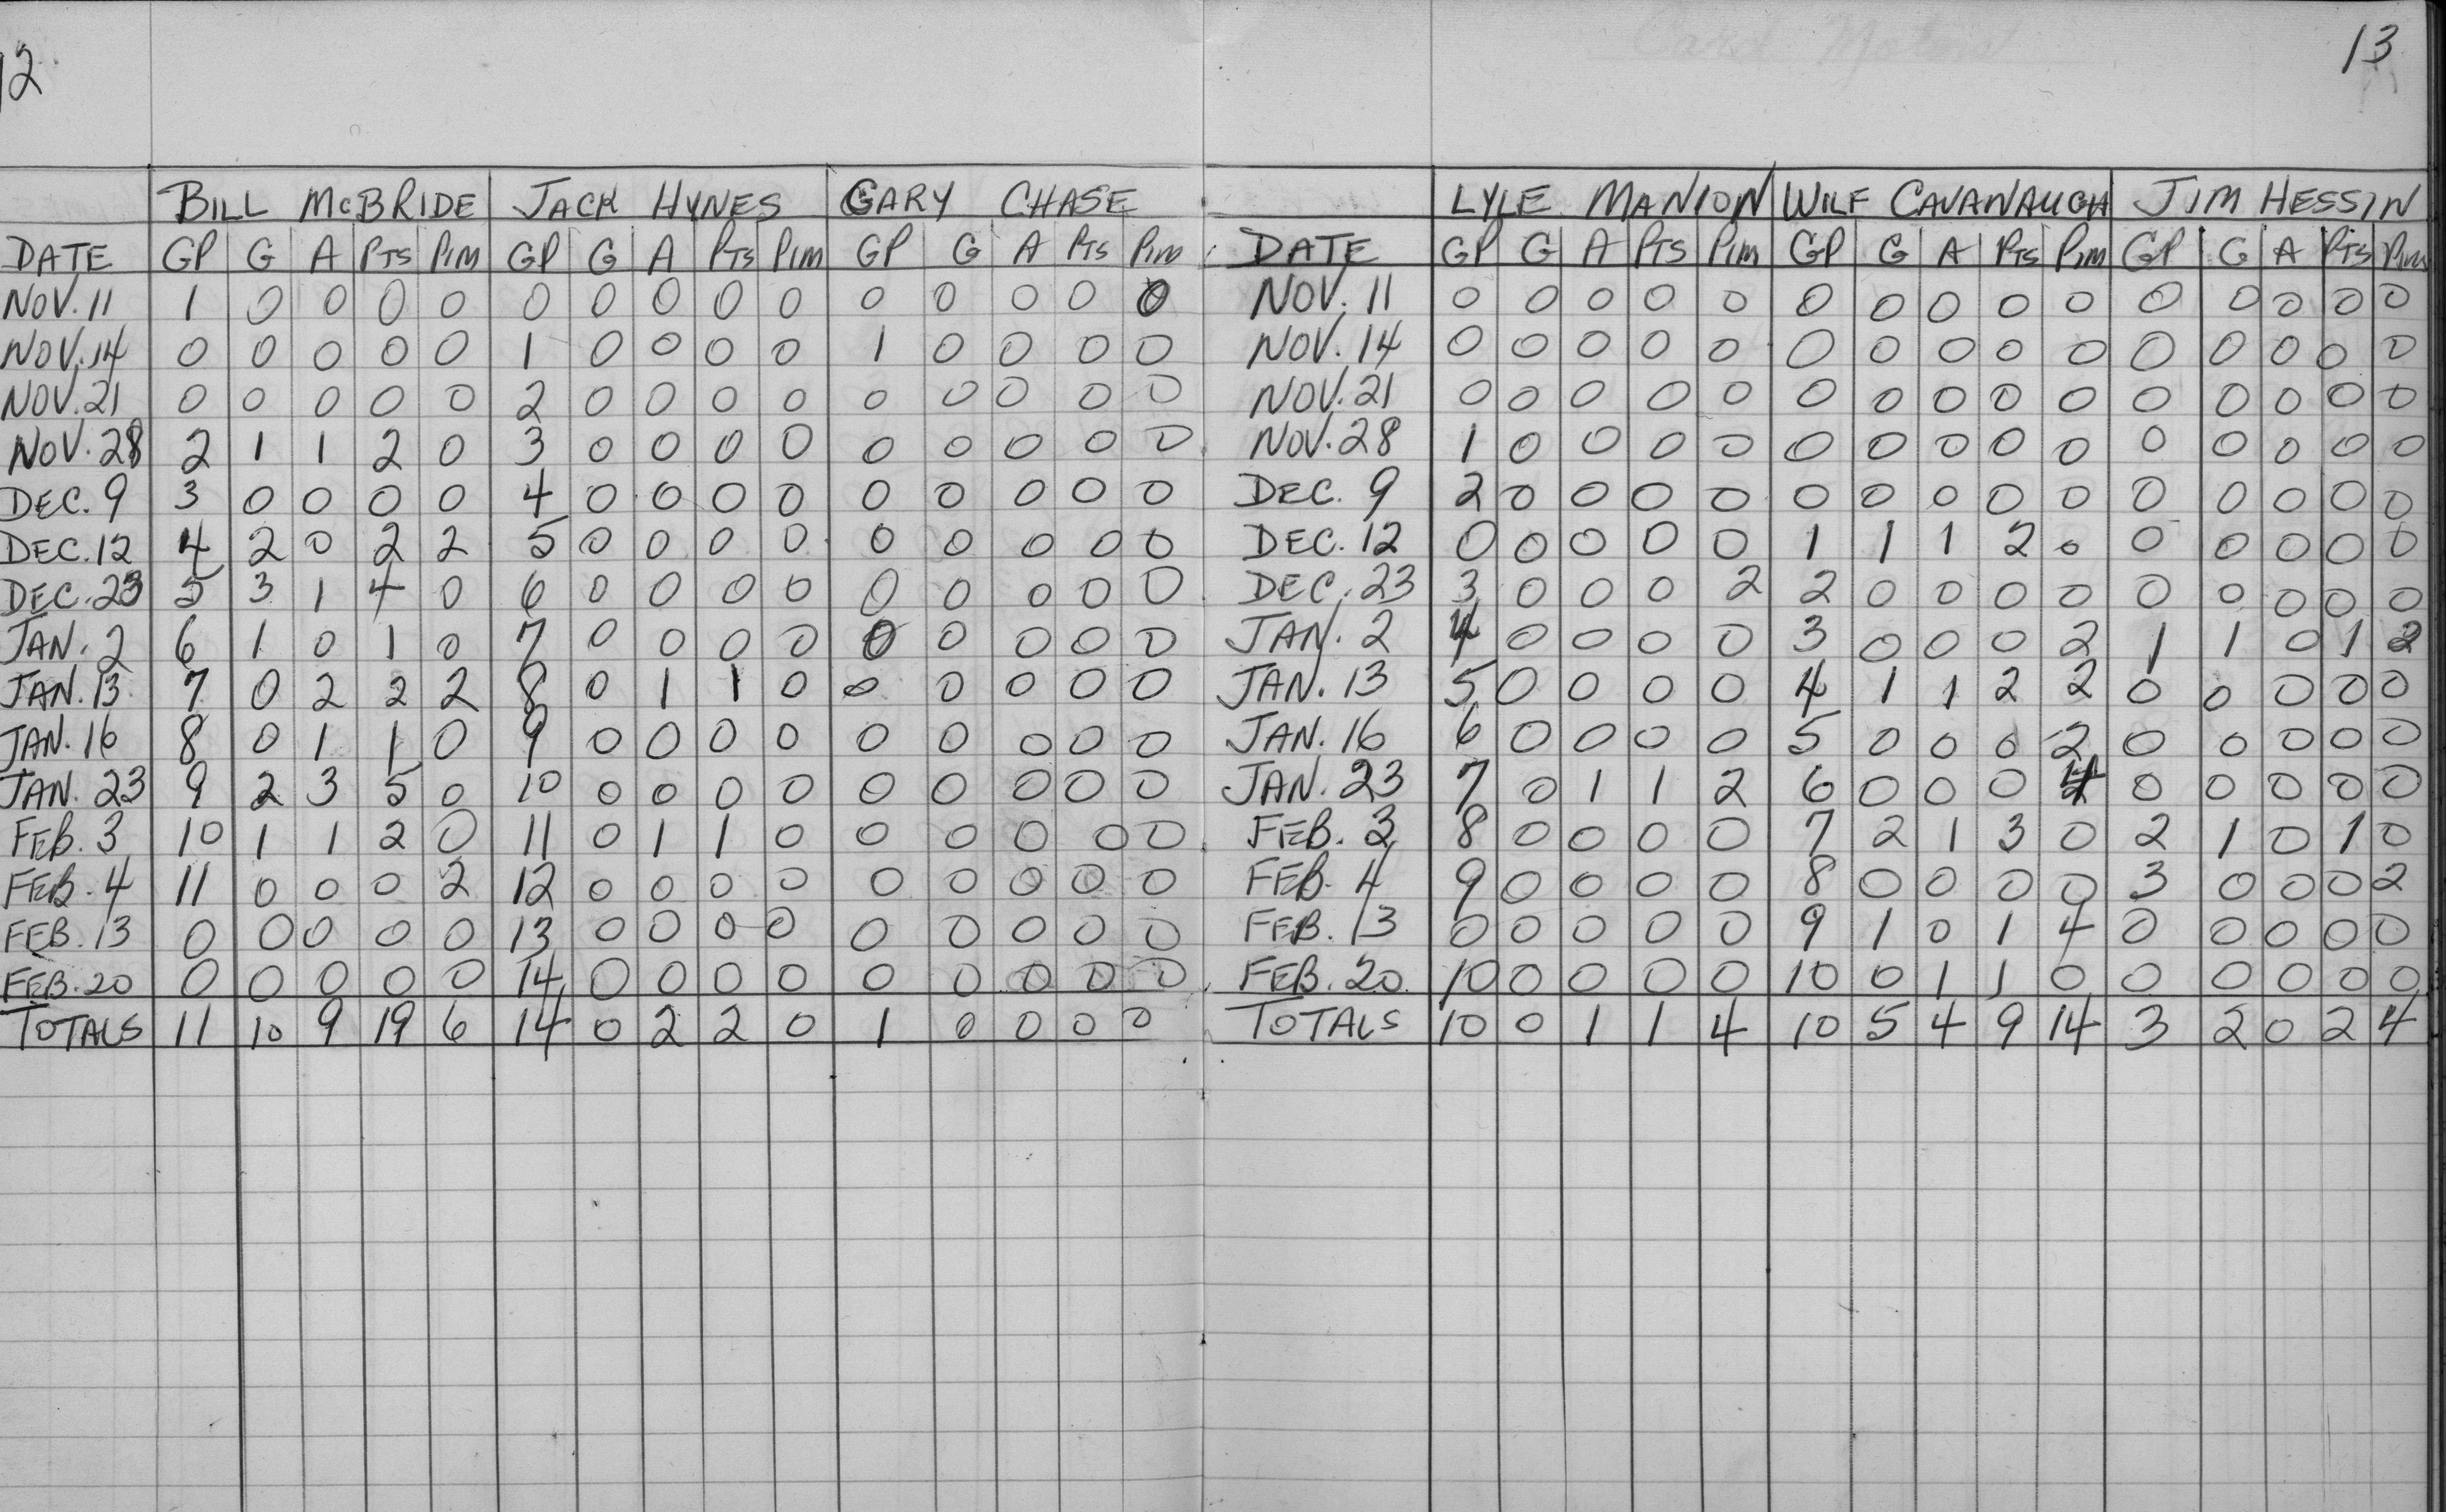 12
BILL McBRIDE JACK HYNES GARY CHASE
DATE GP G A PTS PIM GP G A PTS PIM GP G A PTS PIM
NOV. 11 1 0 0 0 0 0 0 0 0 0 0 0 0 0 0
NOV. 14 0 0 0 0 0 1 0 0 0 0 1 0 0 0 0
NOV. 21 0 0 0 0 0 2 0 0 0 0 0 0 0 0 0
NOV. 28 2 1 1 2 0 3 0 0 0 0 0 0 0 0 0
DEC. 9 3 0 0 0 0 4 0 0 0 0 0 0 0 0 0
DEC. 12 4 2 0 2 2 5 0 0 0 0 0 0 0 0 0
DEC. 23 5 3 1 4 0 6 0 0 0 0 0 0 0 0 0
JAN. 2 6 1 0 1 0 7 0 0 0 0 0 0 0 0 0
JAN. 13 7 0 2 2 2 8 0 1 1 0 0 0 0 0 0
JAN. 16 8 0 1 1 0 9 0 0 0 0 0 0 0 0 0
JAN. 23 9 2 3 5 0 10 0 0 0 0 0 0 0 0 0
FEB. 3 10 1 1 2 0 11 0 1 1 0 0 0 0 0 0
FEB. 4 11 0 0 0 2 12 0 0 0 0 0 0 0 0 0
FEB. 13 0 0 0 0 0 13 0 0 0 0 0 0 0 0 0
FEB. 20 0 0 0 0 0 14 0 0 0 0 0 0 0 0 0
TOTALS 11 10 9 19 6 14 0 2 2 0 1 0 0 0 0
13
LYLE MANION WILF CAVANAUGH JIM HESSIN
DATE GP G A PTS PIM GP G A PTS PIM GP G A PTS PIM
NOV. 11 0 0 0 0 0 0 0 0 0 0 0 0 0 0 0
NOV. 14 0 0 0 0 0 0 0 0 0 0 0 0 0 0 0
NOV. 21 0 0 0 0 0 0 0 0 0 0 0 0 0 0 0
NOV. 28 1 0 0 0 0 0 0 0 0 0 0 0 0 0 0
DEC. 9 2 0 0 0 0 0 0 0 0 0 0 0 0 0 0
DEC. 12 0 0 0 0 0 1 1 1 2 0 0 0 0 0 0
DEC. 23 3 0 0 0 2 2 0 0 0 0 0 0 0 0 0
JAN. 2 4 0 0 0 0 3 0 0 0 2 1 1 0 1 2
JAN. 13 5 0 0 0 0 4 1 1 2 2 0 0 0 0 0
JAN. 16 6 0 0 0 0 5 0 0 0 2 0 0 0 0 0
JAN. 23 7 0 1 1 2 6 0 0 0 4 0 0 0 0 0
FEB. 3 8 0 0 0 0 7 2 1 3 0 2 1 0 1 0
FEB. 4 9 0 0 0 0 8 0 0 0 0 3 0 0 0 2
FEB. 13 0 0 0 0 0 9 1 0 1 4 0 0 0 0 0
FEB. 20 10 0 0 0 0 10 0 1 1 0 0 0 0 0 0
TOTALS 10 0 1 1 4 10 5 4 9 14 3 2 0 2 4